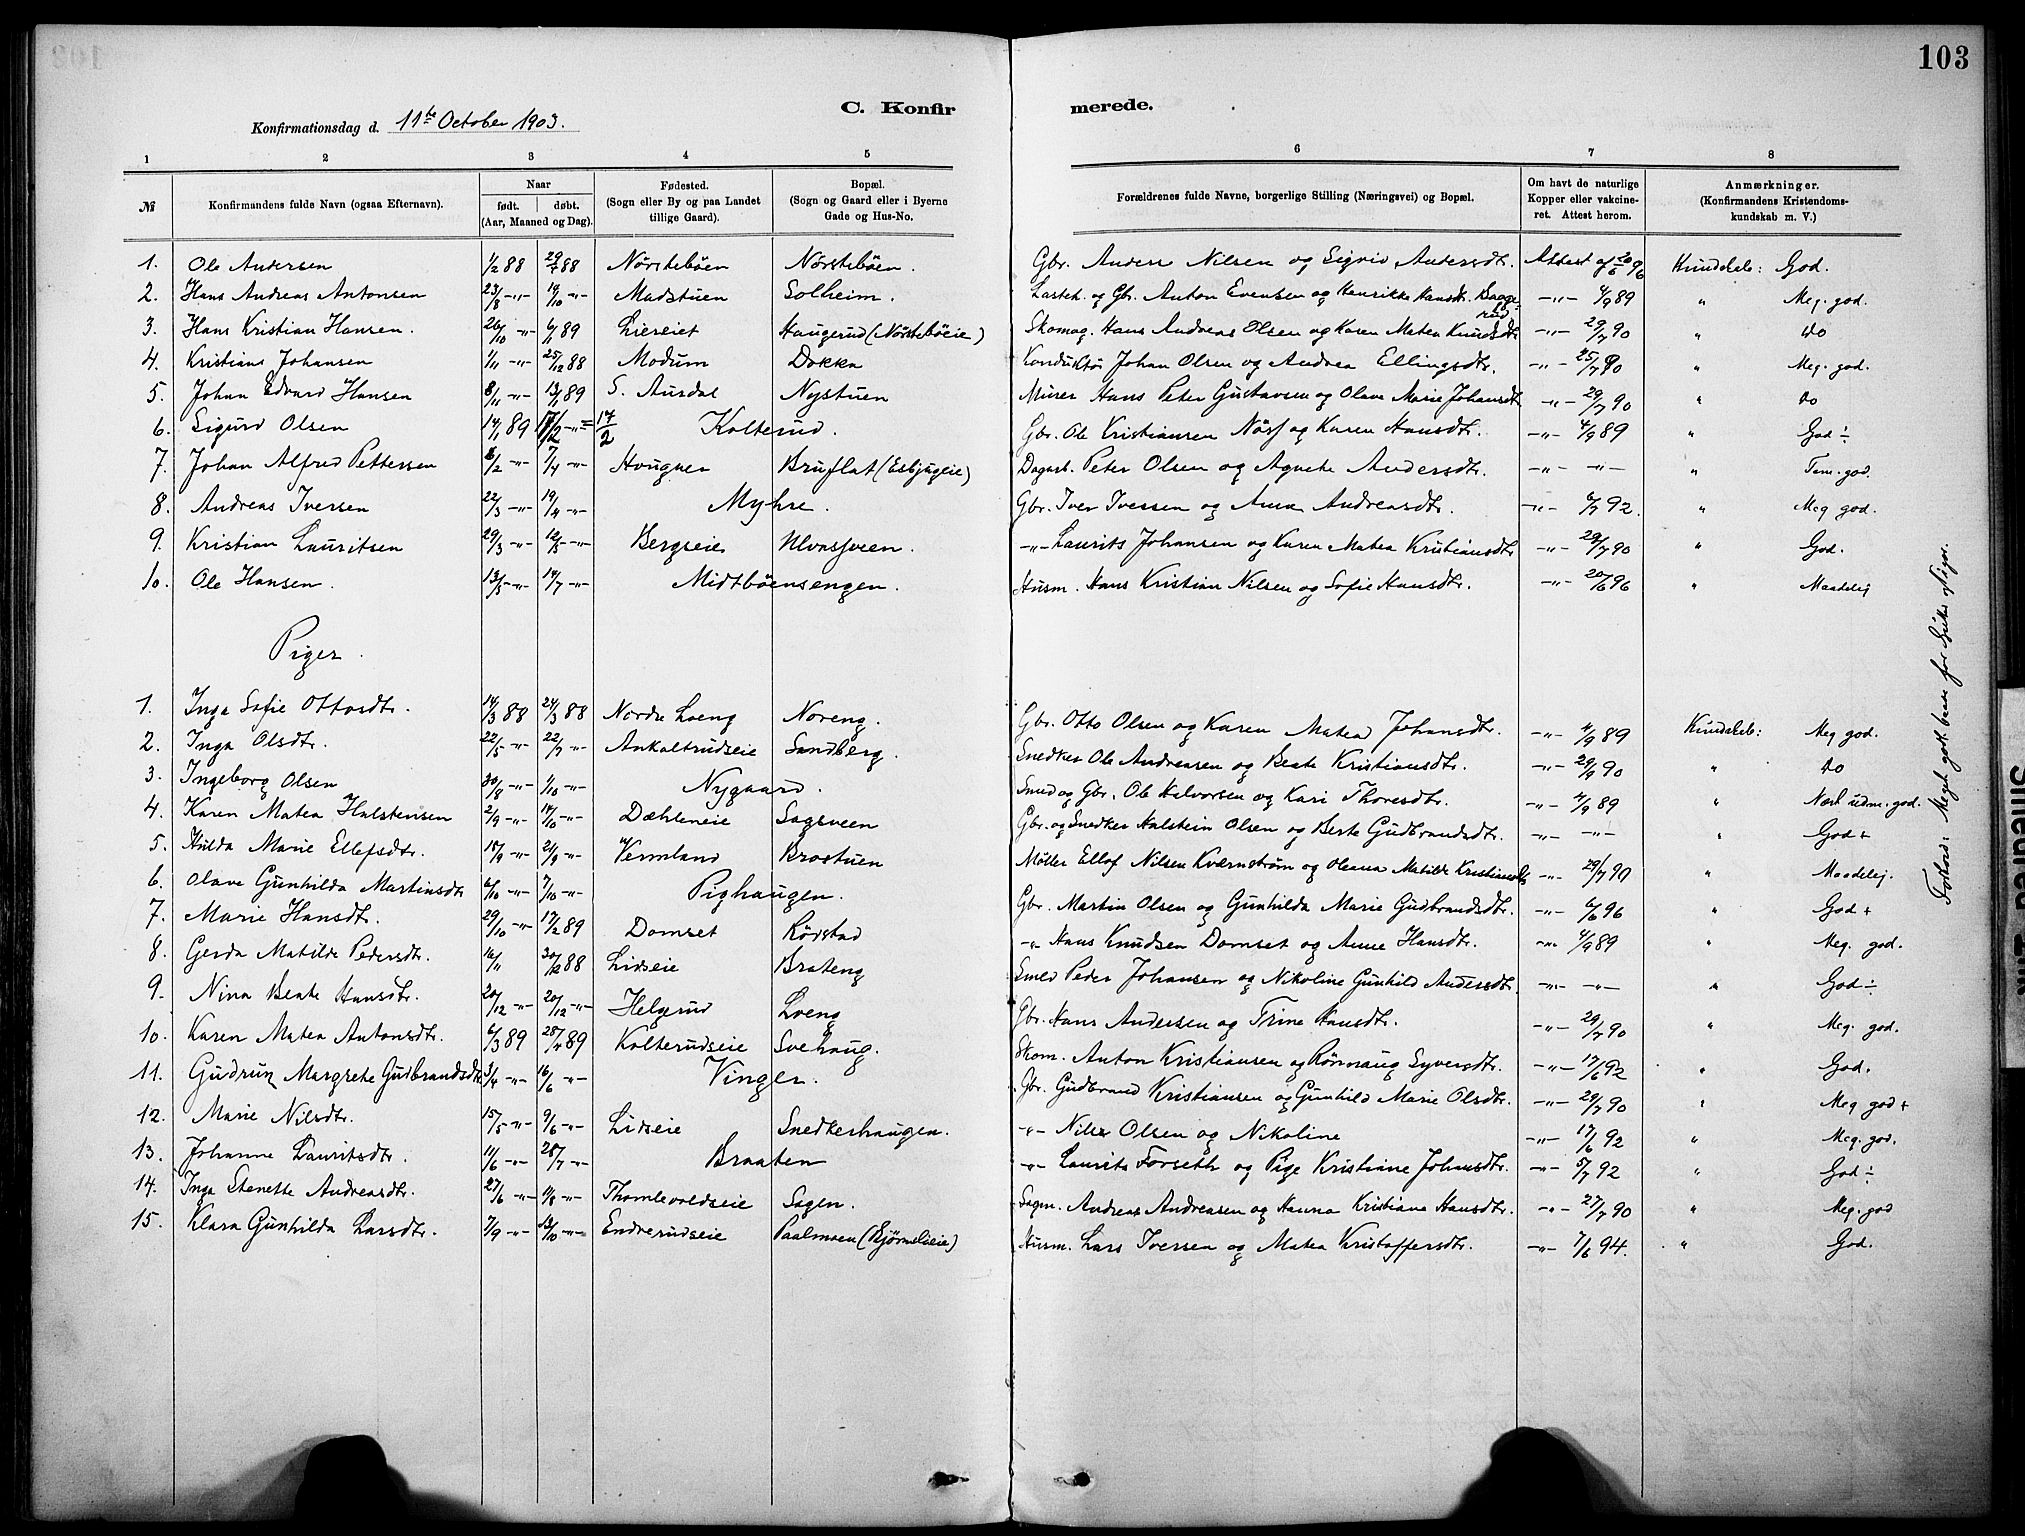 103
C. Konfirmerede.
Konfirmationsdag d. 11te October 1903.
1 2 3 4 5 6 7 8
№ Konfirmandens fulde Navn (ogsaa Efternavn). Naar født. døbt. (Aar, Maaned og Dag). Fødested. (Sogn eller By og paa Landet tillige Gaard). Bopæl. (Sogn og Gaard eller i Byerne Gade og Hus-No. Forældrenes fulde Navne, borgerlige Stilling (Næringsvei) og Bopæl. Om havt de naturlige Kopper eller vakcineret. Attest herom. Anmærkninger. (Konfirmandens Kristendomskundskab m. V.)
1. Ole Andersen 1/2 88 29/4 88 Nörstebøen Nörstebøen. Gbr. Anders Nilsen og Sigrid Andersdtr. Attest af 20/6 96 Kundskab: God.
2. Hans Andreas Antonsen 23/8 -"- 19/10 -"- Madstuen Solheim. Gbr. Anton Evensen og Henrikke Hansdt. Baggerud -"- 4/9 89 " Meg. god.
3. Hans Kristian Hansen. 26/10 -"- 6/1 89 Lieseiet Haugerud (Nörstebøeie) Skomag. Hans Andreas Olsen og Karen Matea Knudsdtr -"- 29/7 90 " do
4. Kristians Johansen 1/11 -"- 25/12 88 Modum Dokka Konduktör Johan Olsen og Andrea Ellingsdtr. -"- 25/7 90 " Meg. god.
5. Johan Edvard Hansen 8/11 -"- 13/1 89 S. Aurdal Nystuen Murer Hans Peter Gustavsen og Olava Marie Johansdt -"- 29/7 90 " do
6. Sigurd Olsen 14/1 89 17/2 -"- = 17/2 Kolterud. Gbr. Ole Kristiansen Nörf og Karen Hansdtr. -"- 4/9 89 " God ÷
7. Johan Alfred Pettersen 8/2 -"- 7/4 -"- Hougner Bruflat (Esbjugeie) Dagarb. Peter Olsen og Agnete Andersdtr. -"- -"- " Tem. god.
8. Andreas Iversen 22/3 -"- 19/4 -"- Myhre. Gbr. Iver Iversen og Anna Andreasdtr. -"- 6/7 92. " Meg god.
9. Kristian Lauritsen 29/3 -"- 12/5 -"- Bergseie Ulvassveen. -"- Laurits Johansen og Karen Matea Kristiansdtr -"- 29/7 90 " God.
10. Ole Hansen. 13/5 -"- 14/7 -"- Midtbøensengen. Husm. Hans Kristian Nilsen og Sofie Hansdtr. -"- 20/6 96 " Maadelig
Piger.
1. Inga Sofie Ottosdtr. 14/3 88 24/3 88 Nordre Loeng Noreng. Gbr. Otto Olsen og Karen Matea Johansdtr. -"- 4/9 89 Kundskab: Meg god.
2. Inga Olsdtr. 22/5 -"- 22/7 -"- Ankoltrudseie Sandberg. Snedker Ole Andreasen og Beate Kristiansdtr. -"- 29/7 90 " do
3. Ingeborg Olsen 30/8 -"- 1/10 -"- Nygaard. Smed og Gbr. Ole Halvorsen og Kari Thoresdtr. -"- 4/9 89 " Næst udm. god.
4. Karen Matea Halstensen 2/9 -"- 14/10 -"- Dæhleneie Sagsveen Gbr. og Snedker Halstein Olsen og Berte Gudbrandsdtr. -"- -"- " God +
5. Hulda Marie Ellefsdtr. 18/9 -"- 21/9 -"- Vermland Brostuen Møller Ellef Nilsen Kværnström og Oleana Matilde Kristiansdtr -"- 29/7 90 " Maadelig.
6. Olava Gunhilda Martinsdtr 6/10 -"- 7/10 -"- Pighaugen. Gbr. Martin Olsen og Gunhilda Marie Gudbrandsdtr. -"- 6/6 96 " God +
7. Marie Hansdtr. 29/10 -"- 17/2 89 Domset Rödstad -"- Hans Knudsen Domset og Anne Hansdtr. -"- 4/9 89 " Meg. god.
8. Gerda Matilde Pedersdtr. 16/11 30/12 88 Lidseie Brateng Smed Peder Johansen og Nikoline Gunhild Andersdtr. -"- -"- " God ÷
9. Nina Beate Hansdtr. 20/12 -"- 20/12 -"- Helgerud Loeng Gbr. Hans Andersen og Trine Hansdtr. -"- 29/7 90 " Meg. god.
10. Karen Matea Antonsdtr. 6/3 89 28/4 89 Kolterudseie Svehaug. Skom. Anton Kristiansen og Rönnaug Syversdtr. -"- 17/6 92 " God.
11. Gudrun Margrete Gudbrandsdtr 3/4 -"- 16/6 -"- Vinger. Gbr. Gudbrand Kristiansen og Gunhild Marie Olsdtr. -"- 29/7 90 " Meg god +
12. Marie Nilsdtr. 15/5 -"- 9/6 -"- Lidseie Snedkerhaugen. -"- Nils Olsen og Nikoline -"- 17/6 92 " Meg. god.
13. Johanne Lauritsdtr. 11/6 -"- 28/7 -"- Braaten -"- Laurits Forseth og Pige Kristiane Johansdtr. -"- 5/7 92 " God ÷
14. Inga Stenette Andreasdtr. 27/6 -"- 11/8 -"- Thomlevoldseie Sagen. Sagm. Andreas Andreasen og Hanna Kristiana Hansdtr. -"- 27/7 90 " Meg. god
15. Klara Gunhilda Larsdtr. 7/9 -"- 13/10 -"- Endrerudseie Paalmoen (Bjørnelieeie) Husm. Lars Iversen og Matea Kristoffersdtr. -"- 7/6 94. " God.
Forhold: Meget godt baade for Gutter og Piger.